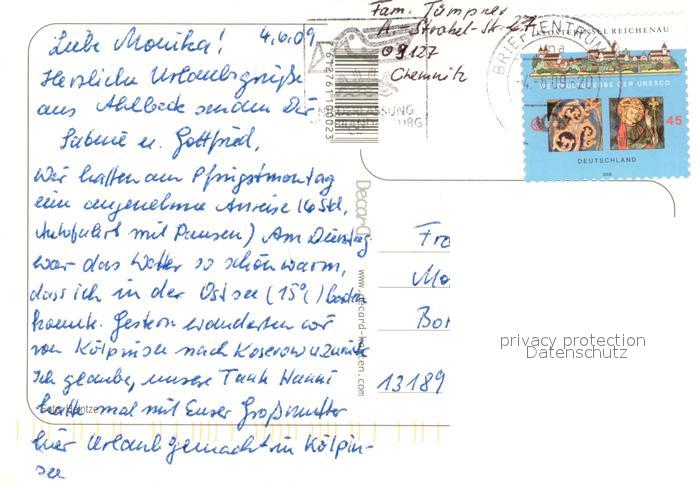 Liebe Monika! 4.6.09
Herzliche Urlaubsgrüße
aus Ahlbeck senden Dir
Sabine u. Gottfried,
Wir hatten am Pfingstmontag
eine angenehme Anreise (6 Std.
Autofahrt mit Pausen) Am Dienstag
war das Wetter so schön warm,
dass ich in der Ostsee (15°C) baden
konnte. Gestern wanderten wir
von Kölpinsee nach Koserow u. zurück
Ich glaube, unsere Tante Hanni
hatte mal mit Eurer Großmutter
hier Urlaub gemacht in Kölpin-
see
Fam. Tümpner
A. Strobel-Str. 27
09127
Chemnitz
NIEDERLASSUNG
BRANDENBURG
BRIEFZENTRUM
KLOSTERINSEL REICHENAU
WELTKULTURERBE DER UNESCO
45
DEUTSCHLAND
2008
Fra
Mo
Bor
13189
privacy protection
Datenschutz